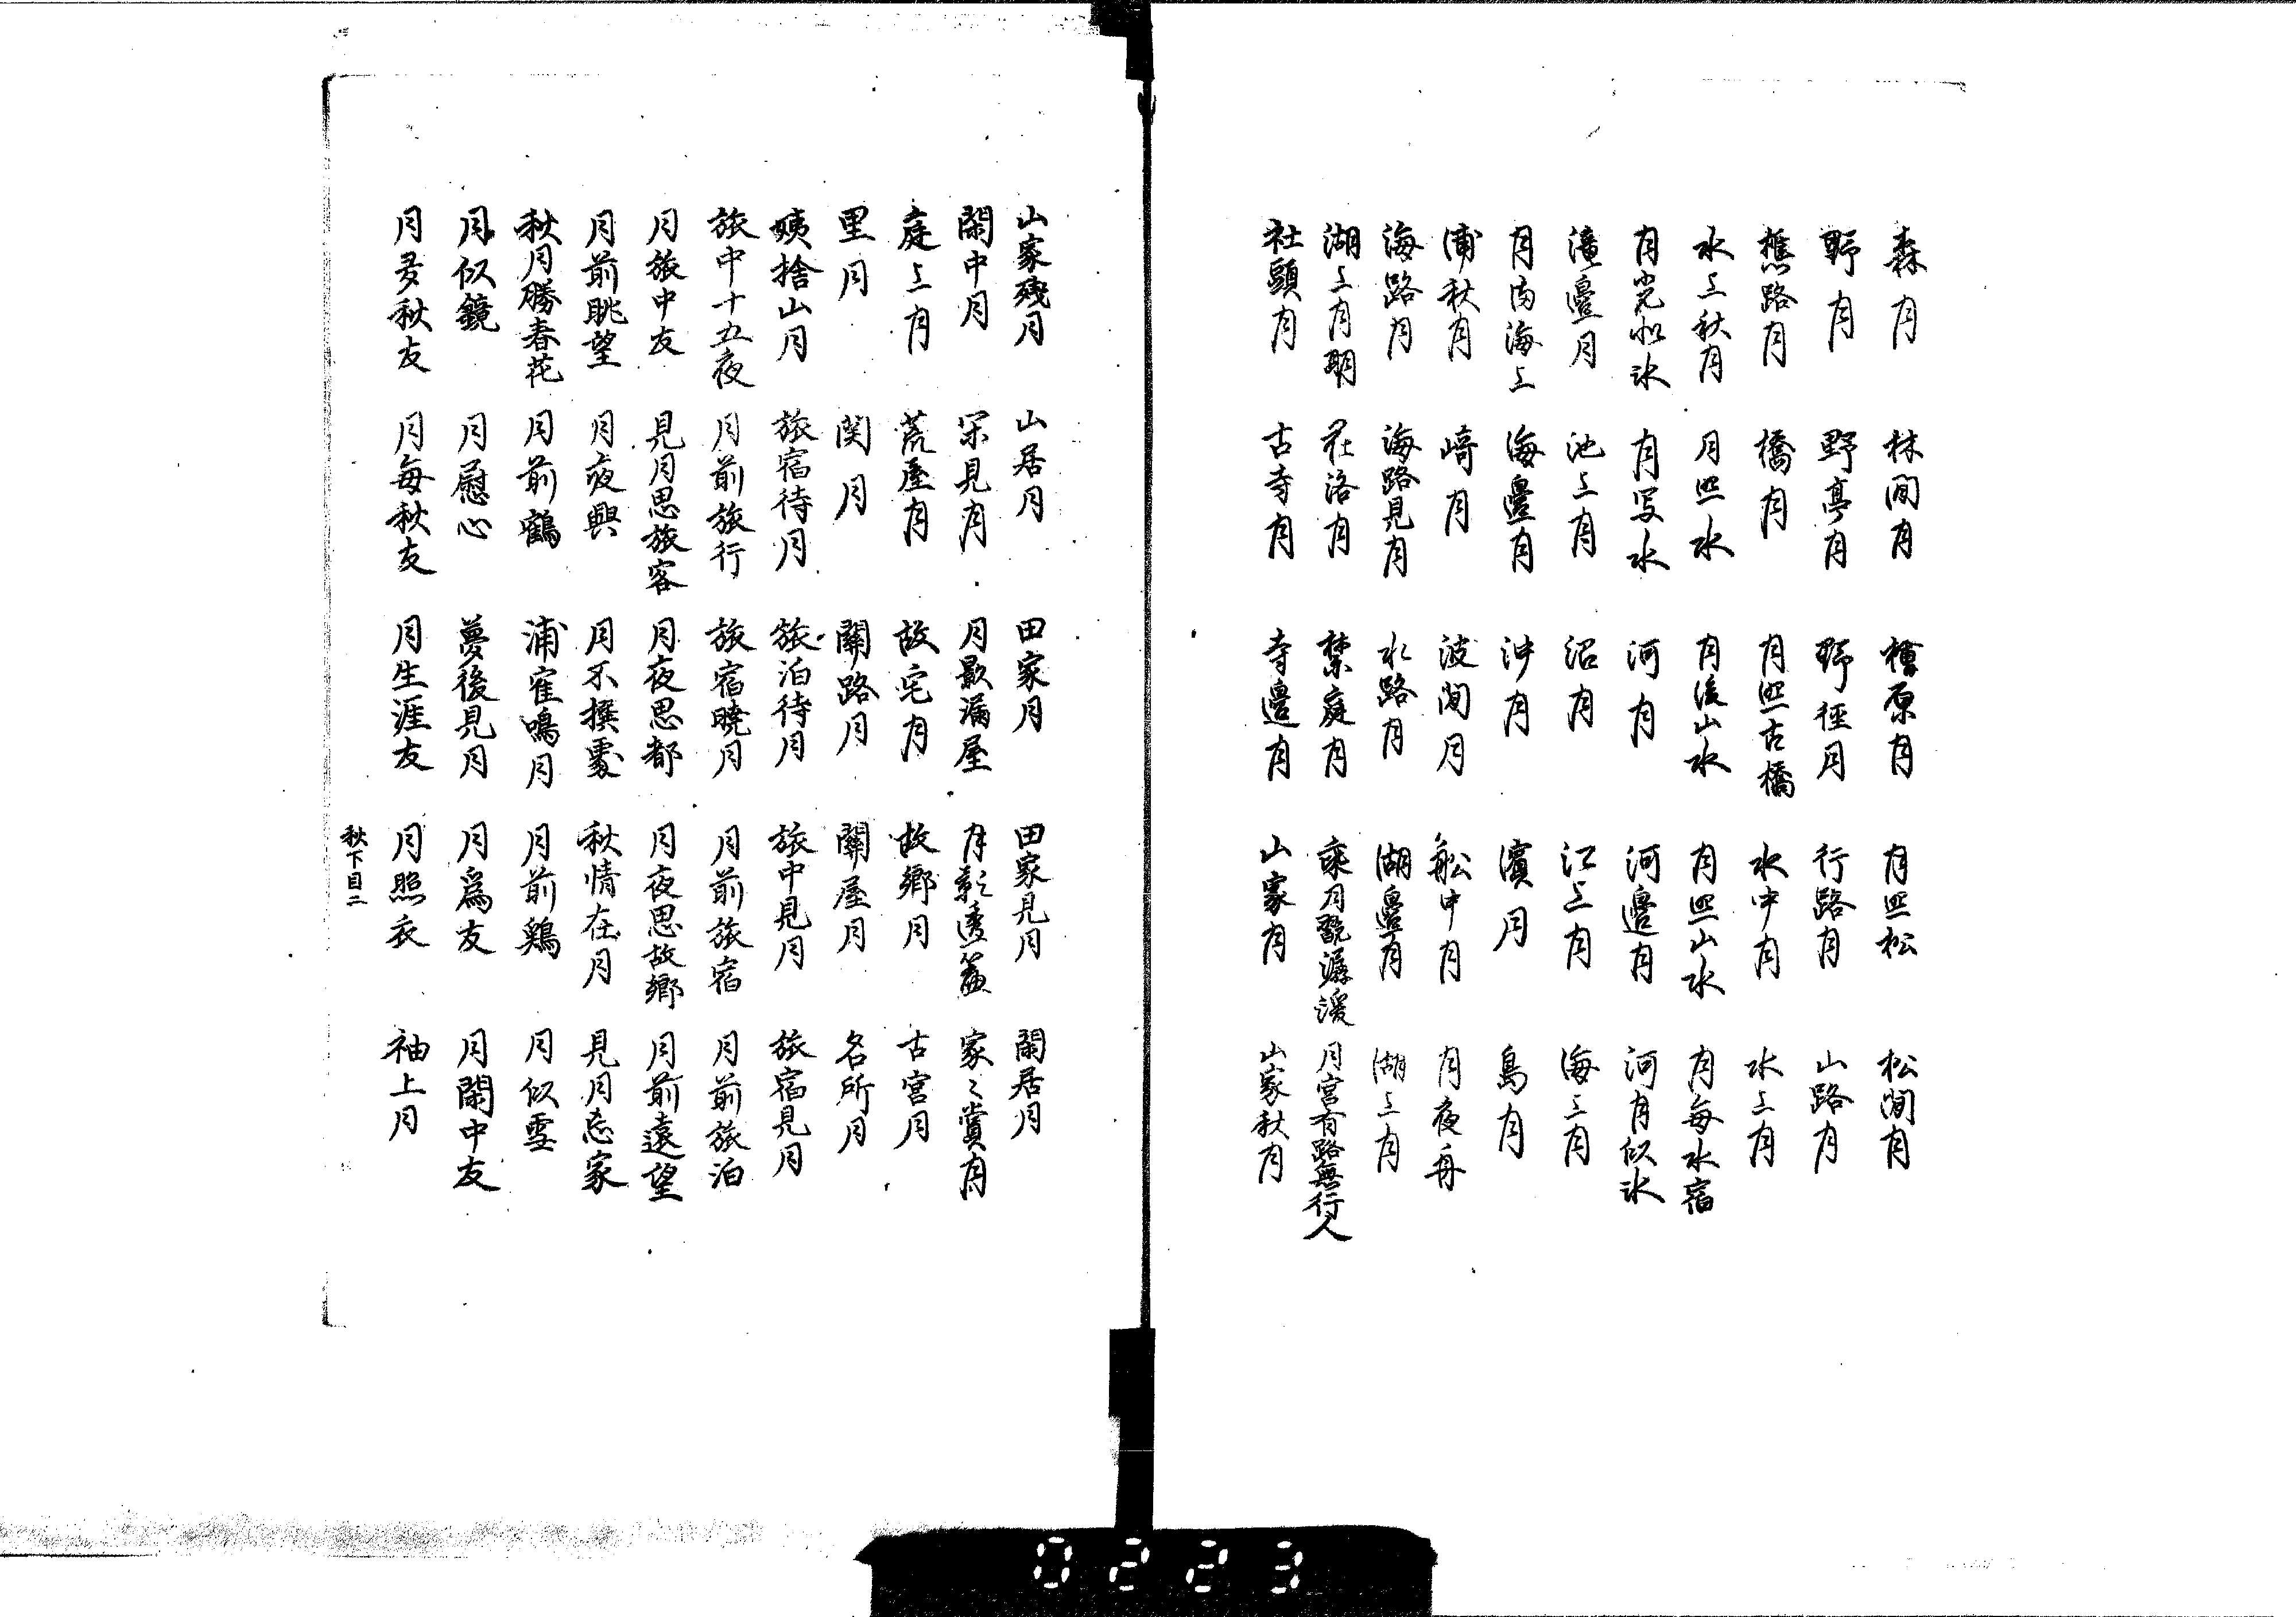 森月　林間月　檜原月　月照松　松間月
野月　野亭月　野径月　行路月　山路月
樵路月　橋月　月照古橋　水中月　水上月
水上秋月　月照水　月浮山水　月照山水　月毎水宿
月光如氷　月写水　河月　河邊月　河月似氷
滝邊月　池上月　沼月　江上月　海上月
月向海上　海邊月　沖月　濱月　島月
浦秋月　﨑月　波間月　舩中月　月夜舟
海路月　海路見月　水路月　湖邊月　湖上月
湖上月明　在洛月　禁庭月　乗月翫潺湲　月宮有路無行人
社頭月　古寺月　寺邊月　山家月　山家秋月
山家残月　山居月　田家月　田家見月　閑居月
閑中月　閑見月　月影漏屋　月影透簾　家〻賞月
庭上月　荒屋月　故宅月　故郷月　古宮月
里月　関月　關路月　關屋月　名所月
姨捨山月　旅宿待月　旅泊待月　旅中見月　旅宿見月
旅中十五夜　月前旅行　旅宿暁月　月前旅宿　月前旅泊
月旅中友　見月思旅客　月夜思都　月夜思故郷　月前遠望
月前眺望　月夜興　月不撰處　秋情在月　見月忘家
秋月勝春花　月前鶴　浦寉鳴月　月前鶏　月似雪
月似鏡　月慰心　夢後見月　月爲友　月閑中友
月多秋友　月毎秋友　月生涯友　月照衣　袖上月
秋下目二
0223